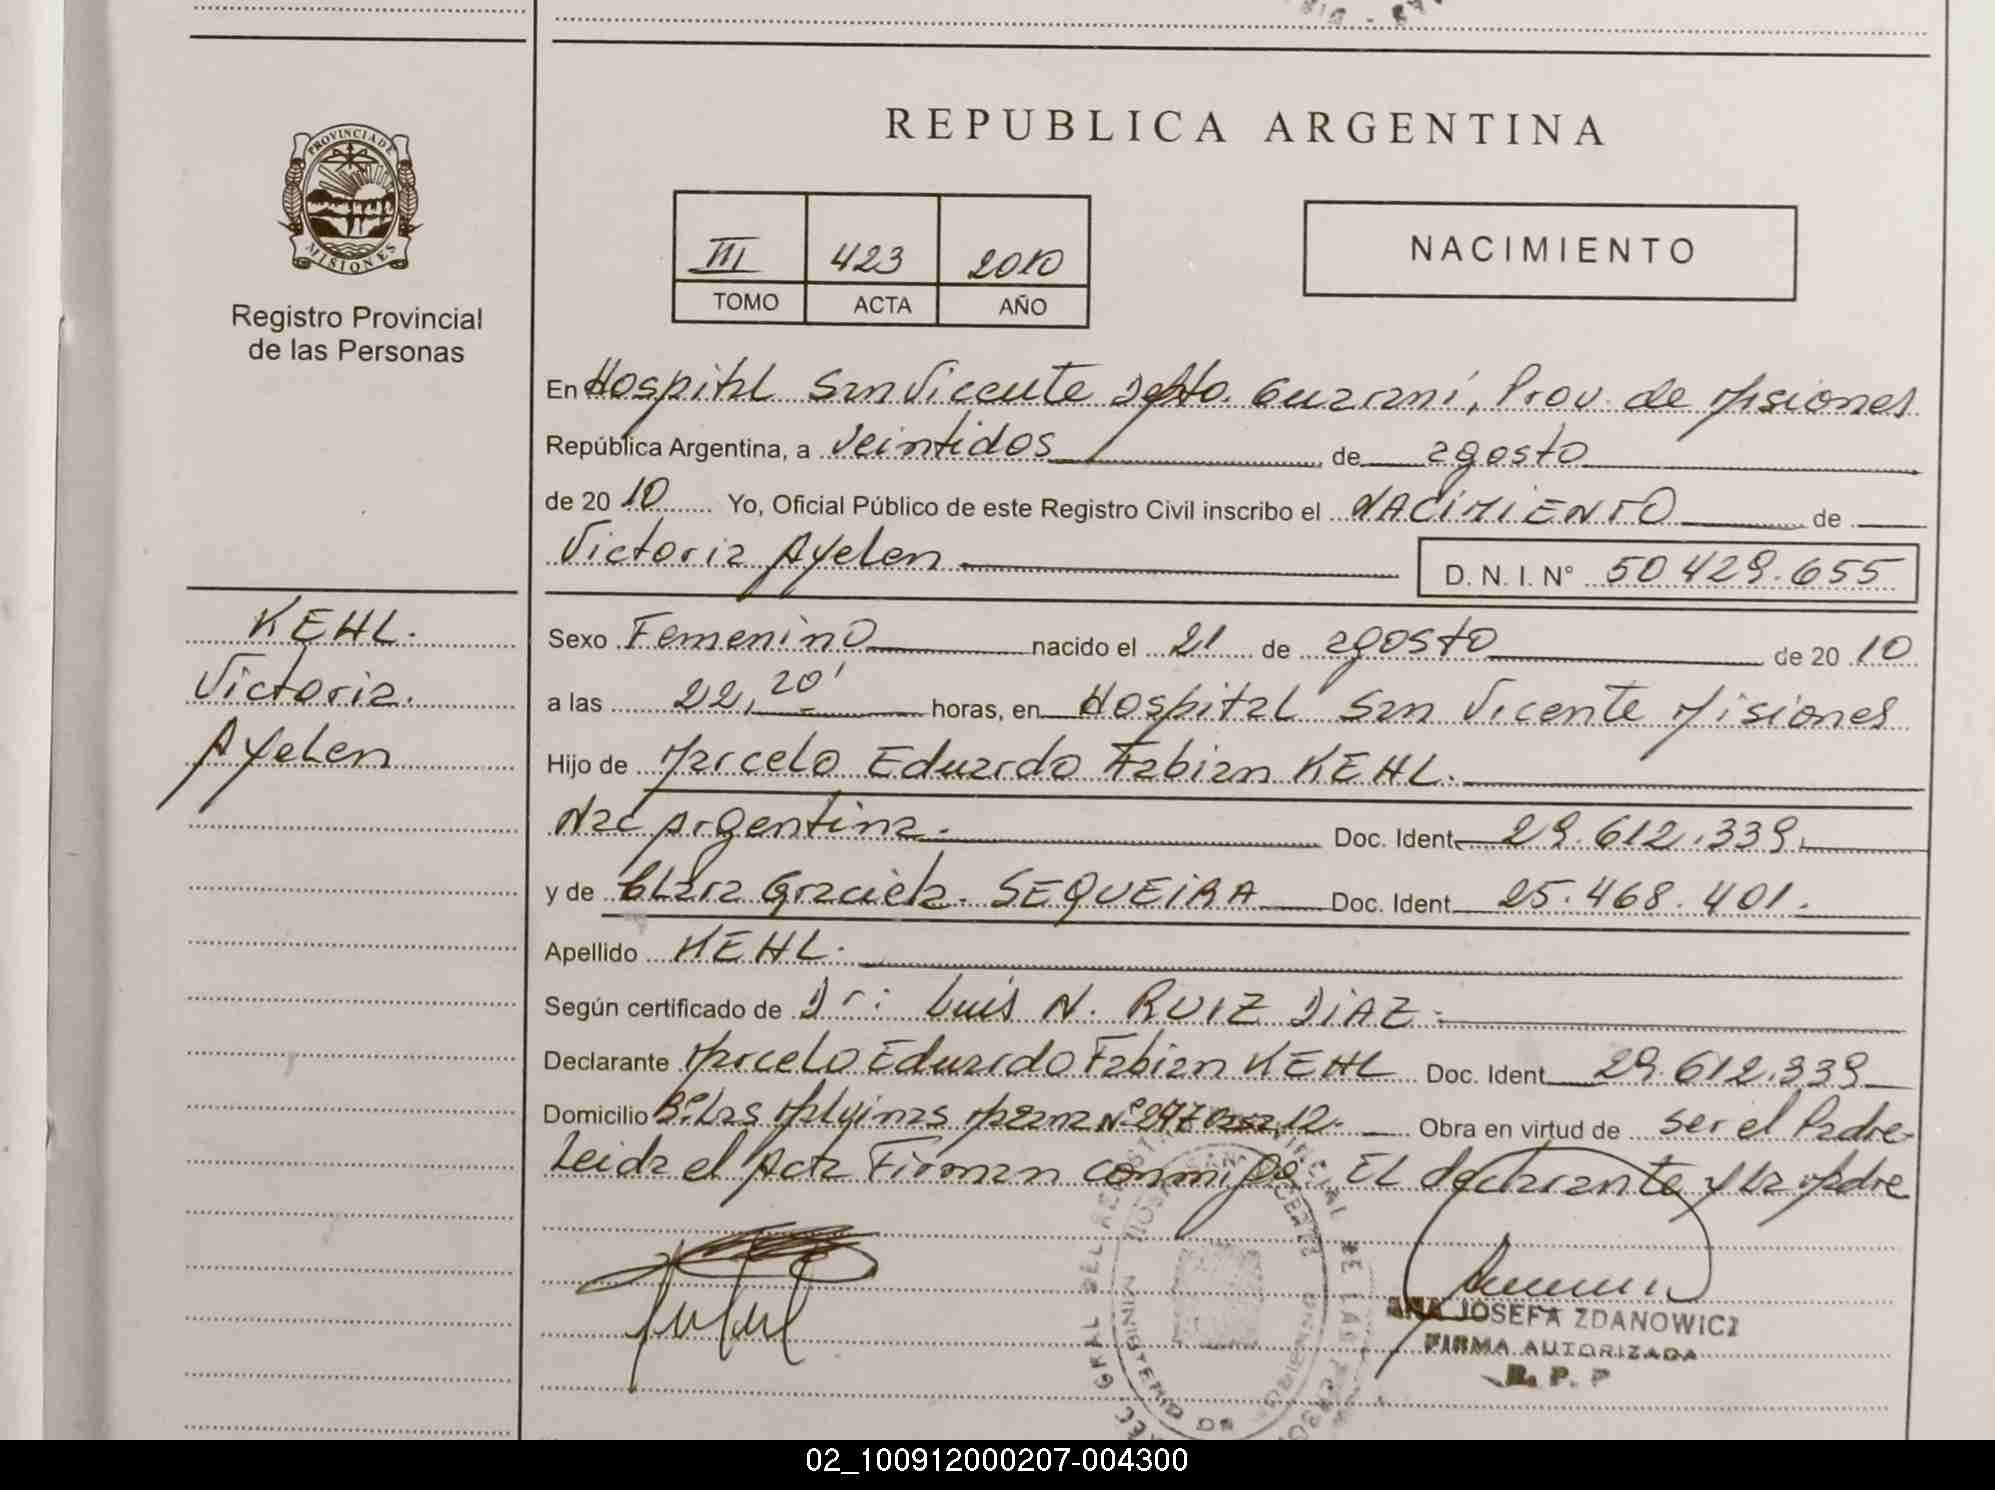 REPUBLICA ARGENTINA
PROVINCIA DE
MISIONES
Registro Provincial
de las Personas
III 423 2010
TOMO ACTA AÑO
NACIMIENTO
En Hospital San Vicente Dpto. Guaraní, Prov. de Misiones
República Argentina, a Veintidos de agosto
de 2010 Yo, Oficial Público de este Registro Civil inscribo el NACIMIENTO de
Victoria Ayelen D. N. I. N° 50.429.655
KEHL.
Victoria.
Ayelen
Sexo Femenino nacido el 21 de agosto de 2010
a las 22, 20' horas, en Hospital San Vicente Misiones
Hijo de Marcelo Eduardo Fabian KEHL.
Nac Argentina. Doc. Ident. 29.612.339.
y de Clara Graciela. SEQUEIRA Doc. Ident. 25.468.401.
Apellido KEHL.
Según certificado de Dr: Luis N. RUIZ DIAZ.
Declarante Marcelo Eduardo Fabian KEHL Doc. Ident. 29.612.339
Domicilio B° Las Malvinas N° 12. Obra en virtud de ser el Padre
Leida el Acta Firman conmigo El declarante y la Madre
ANA JOSEFA ZDANOWICZ
FIRMA AUTORIZADA
R. P. P
02_100912000207-004300